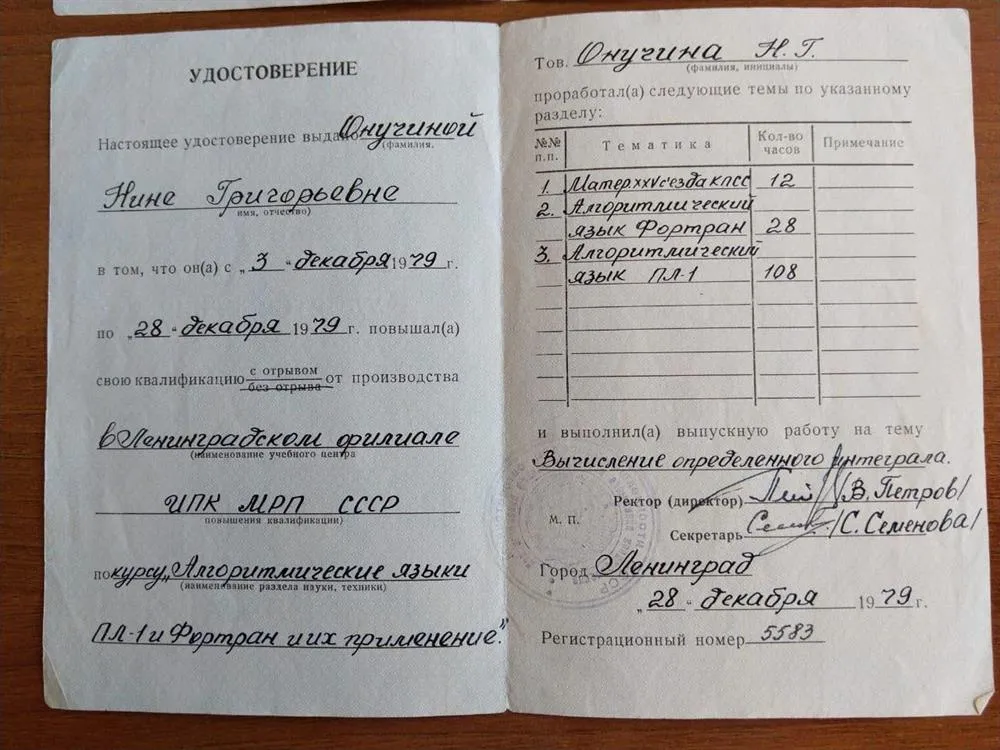 УДОСТОВЕРЕНИЕ
Настоящее удостоверение выдано Онучиной
(фамилия,
Нине Григорьевне
имя, отчество)
в том, что он(а) с „ 3 “ декабря 1979 г.
по „ 28 “ декабря 1979 г. повышал(а)
свою квалификацию с отрывом
без отрыва от производства
в Ленинградском филиале
(наименование учебного центра
ИПК МРП СССР
повышения квалификации)
по курсу „Алгоритмические языки
(наименование раздела науки, техники)
ПЛ-1 и Фортран и их применение."
Тов. Онучина Н. Г.
(фамилия, инициалы)
проработал(а) следующие темы по указанному
разделу:
№№ п.п. Тематика Кол-во часов Примечание
1. Матер. XXV съезда КПСС 12
2. Алгоритмический
язык Фортран 28
3. Алгоритмический
язык ПЛ-1 108
и выполнил(а) выпускную работу на тему
Вычисление определенного интеграла.
Ректор (директор) /В. Петров/
М. П.
Секретарь /С. Семенова/
Город Ленинград
„ 28 “ декабря 1979 г.
Регистрационный номер 5583